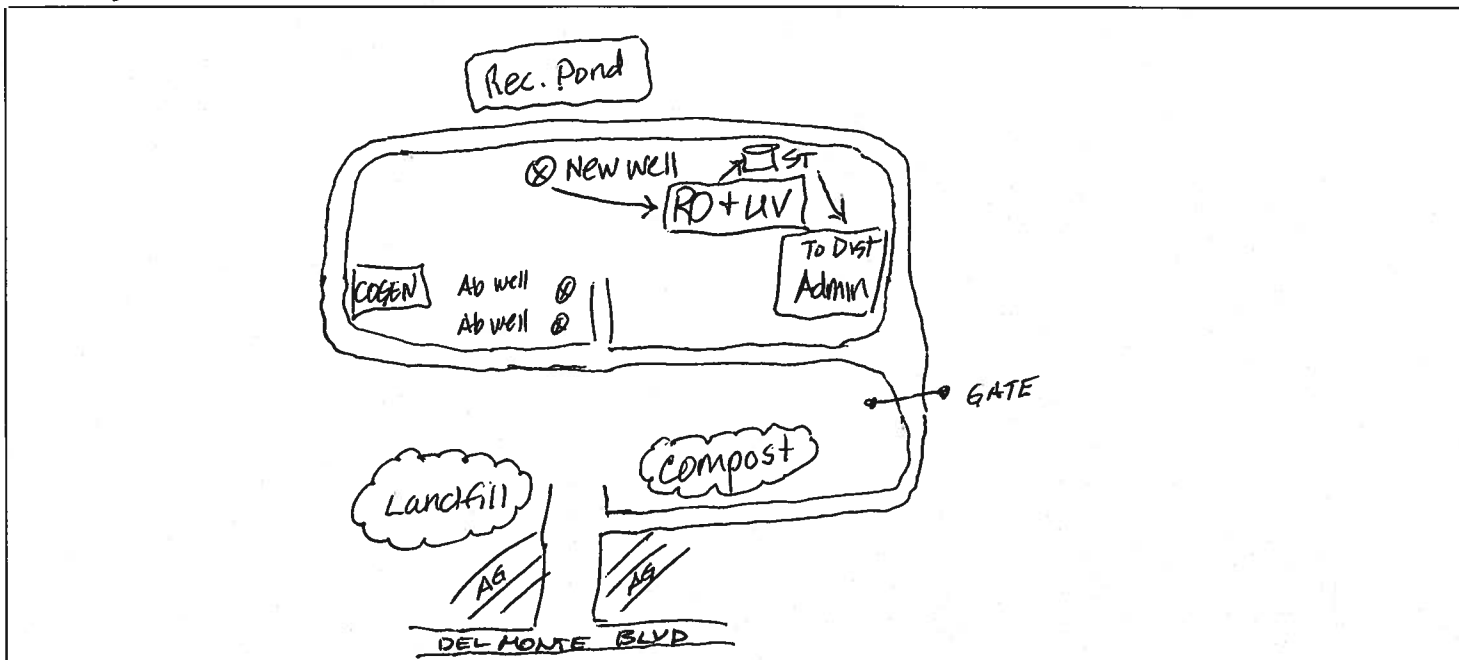 Rec. Pond
New well
ST
RO + UV
To Dist
Admin
COGEN
Ab well
Ab well
GATE
Landfill
Compost
AG
AG
DEL MONTE BLVD